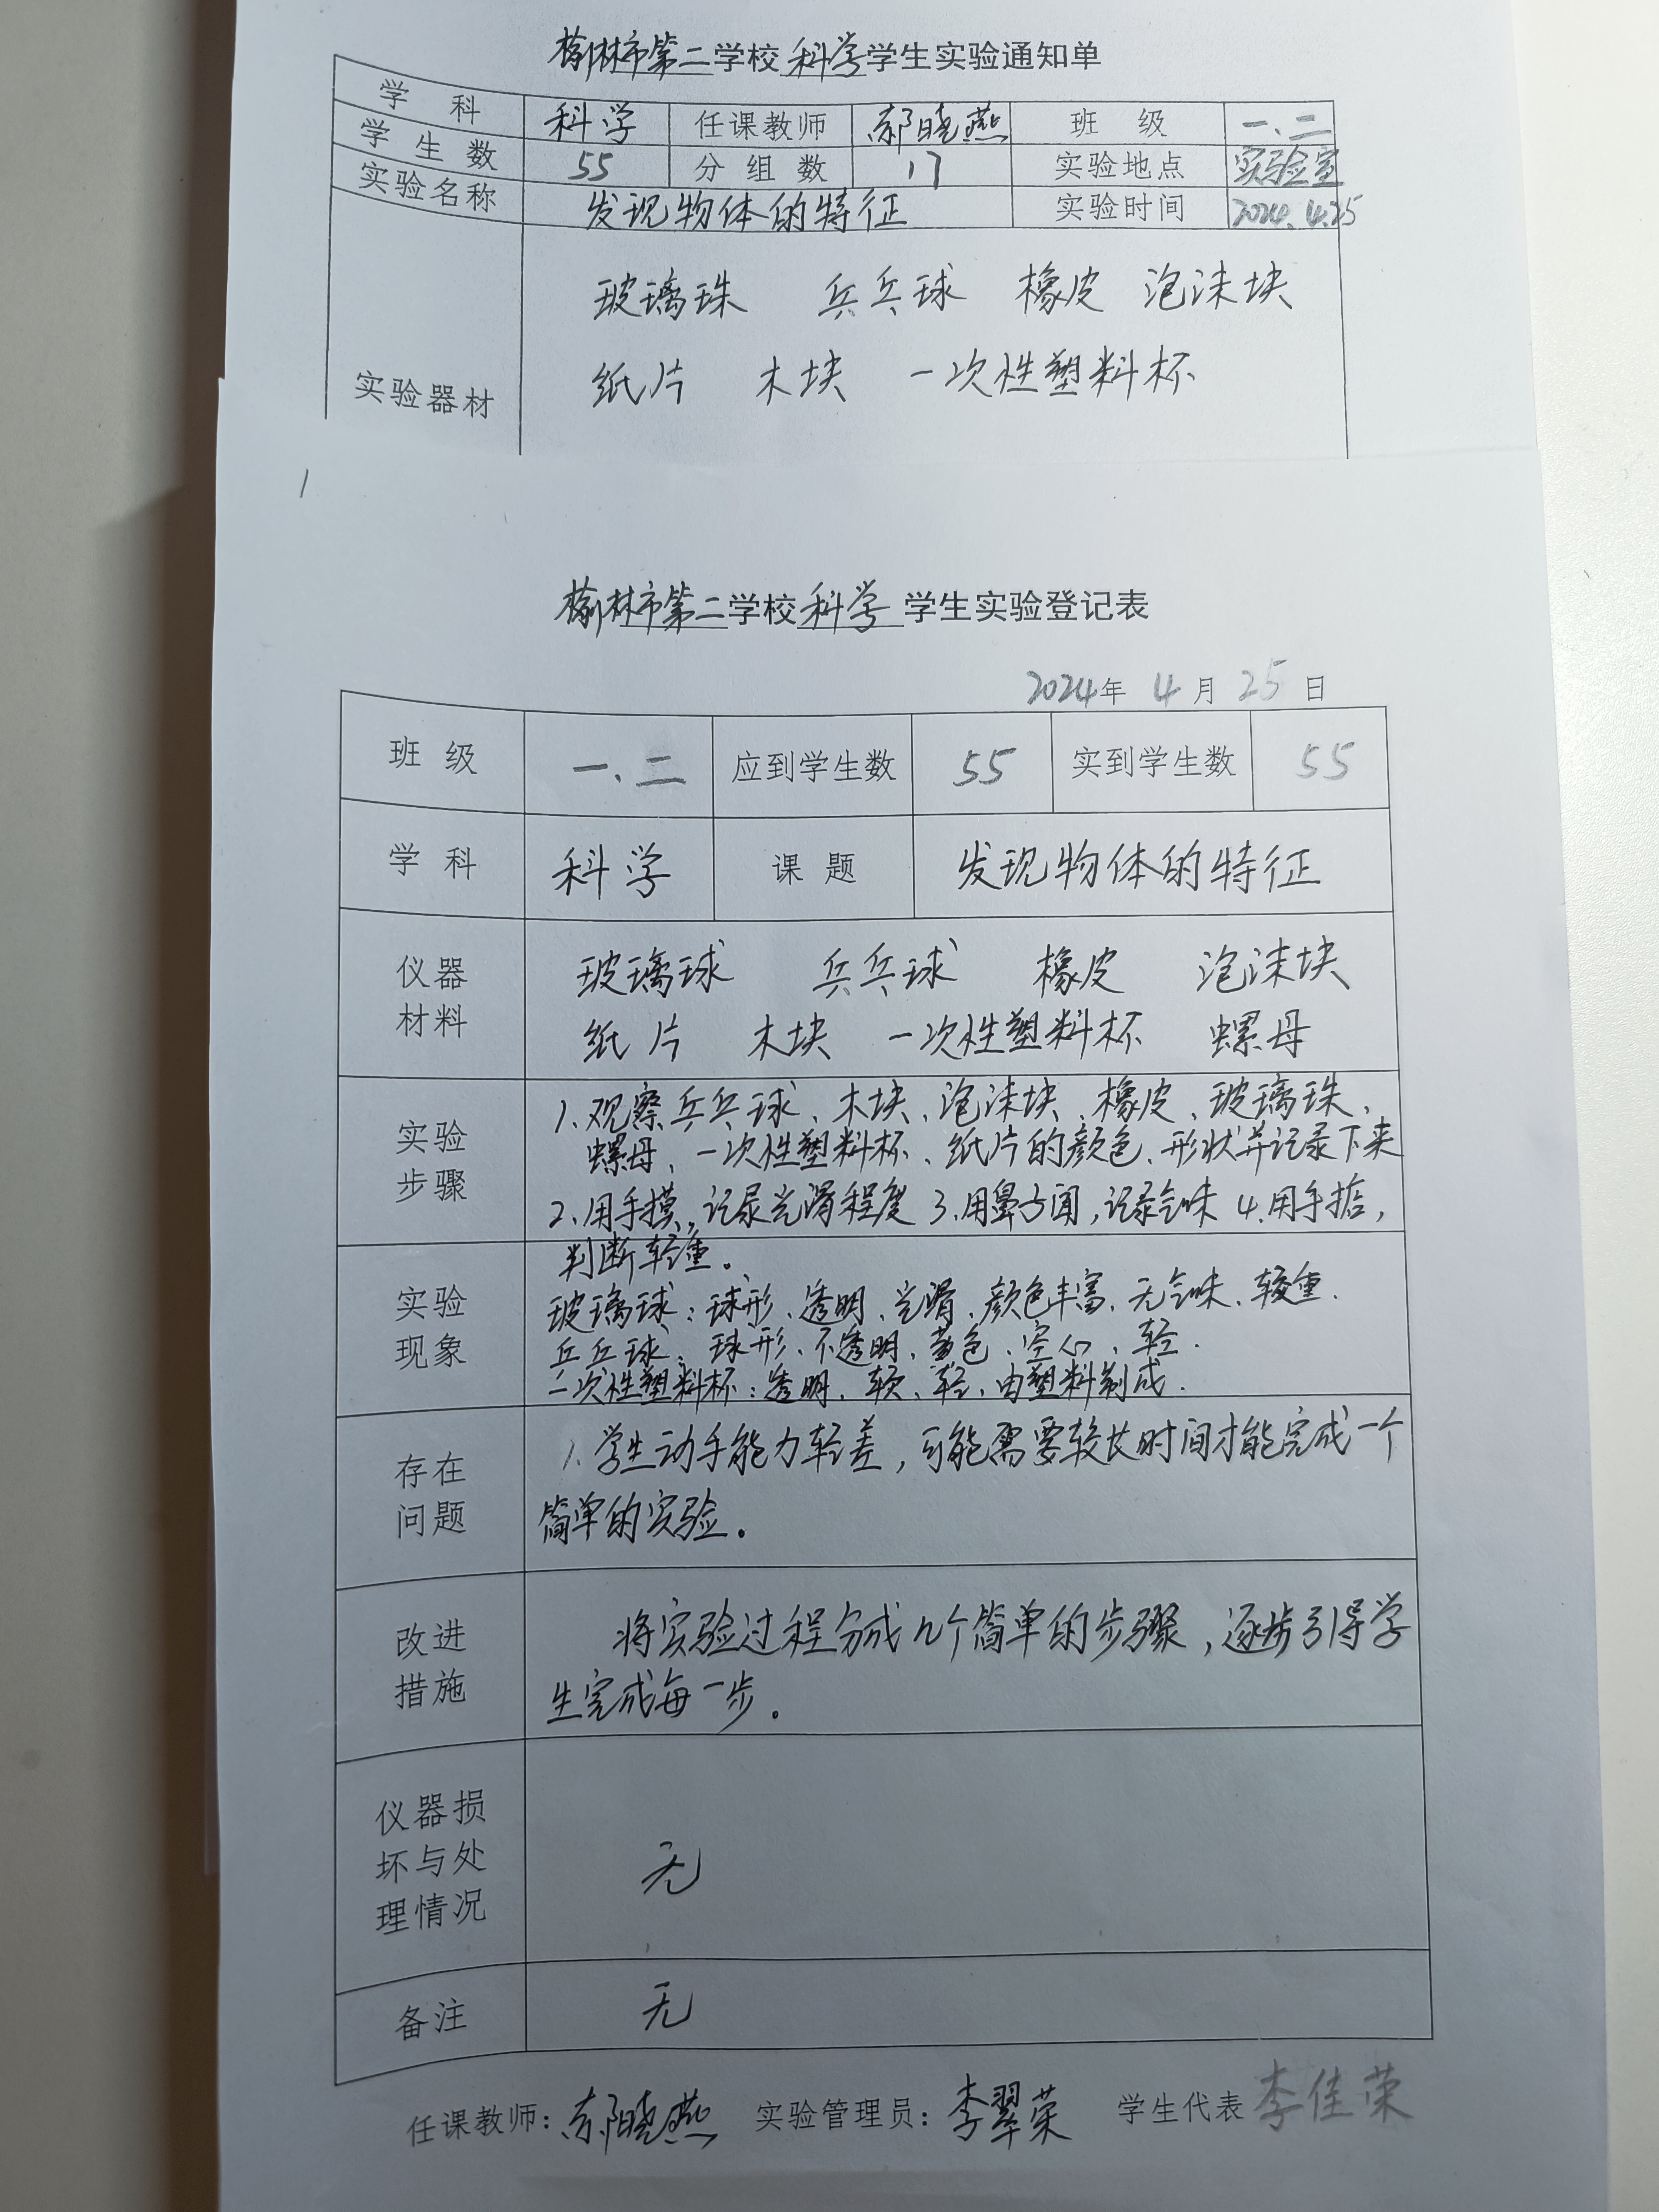 榆林市第二学校 科学 学生实验通知单
学 科 科学 任课教师 郝晓燕 班 级 一、二
学生数 55 分组数 17 实验地点 实验室
实验名称 发现物体的特征 实验时间 2024.4.25
玻璃珠 乒乓球 橡皮 泡沫块
实验器材 纸片 木块 一次性塑料杯
1
榆林市第二学校 科学 学生实验登记表
2024年 4 月 25 日
班 级 一、二 应到学生数 55 实到学生数 55
学 科 科学 课 题 发现物体的特征
仪器 玻璃球 乒乓球 橡皮 泡沫块
材料 纸片 木块 一次性塑料杯 螺母
实验
步骤
1、观察乒乓球、木块、泡沫块、橡皮、玻璃珠、
螺母、一次性塑料杯、纸片的颜色、形状并记录下来
2、用手摸,记录光滑程度 3、用鼻子闻,记录气味 4、用手掂,
判断轻重。
实验
现象
玻璃球:球形、透明、光滑、颜色丰富、无气味、较重.
乒乓球:球形、不透明、黄色、空心、轻.
一次性塑料杯:透明、软、轻、由塑料制成.
存在
问题
1.学生动手能力较差,可能需要较长时间才能完成一个
简单的实验。
改进
措施
将实验过程分成几个简单的步骤,逐步引导学
生完成每一步。
仪器损
坏与处
理情况
无
备注 无
任课教师:郝晓燕 实验管理员:李翠荣 学生代表 李佳荣